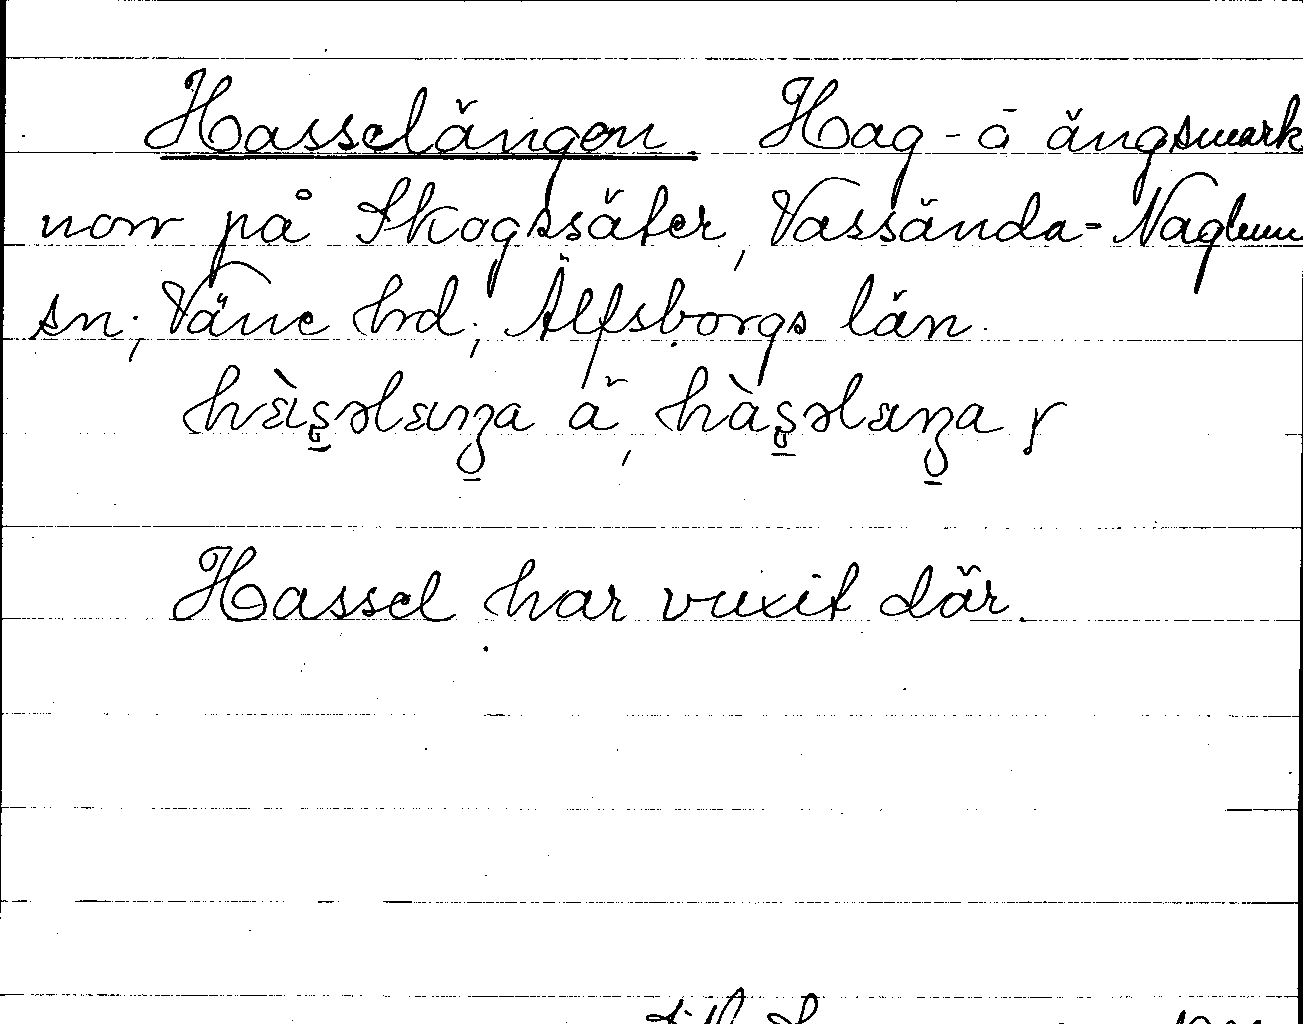 Hasselängen. Hag- å ängsmark
norr på Skogssäter, Vassända-Naglum
sn; Väne hrd; Älfsborgs län.
Hassel har vuxit där.